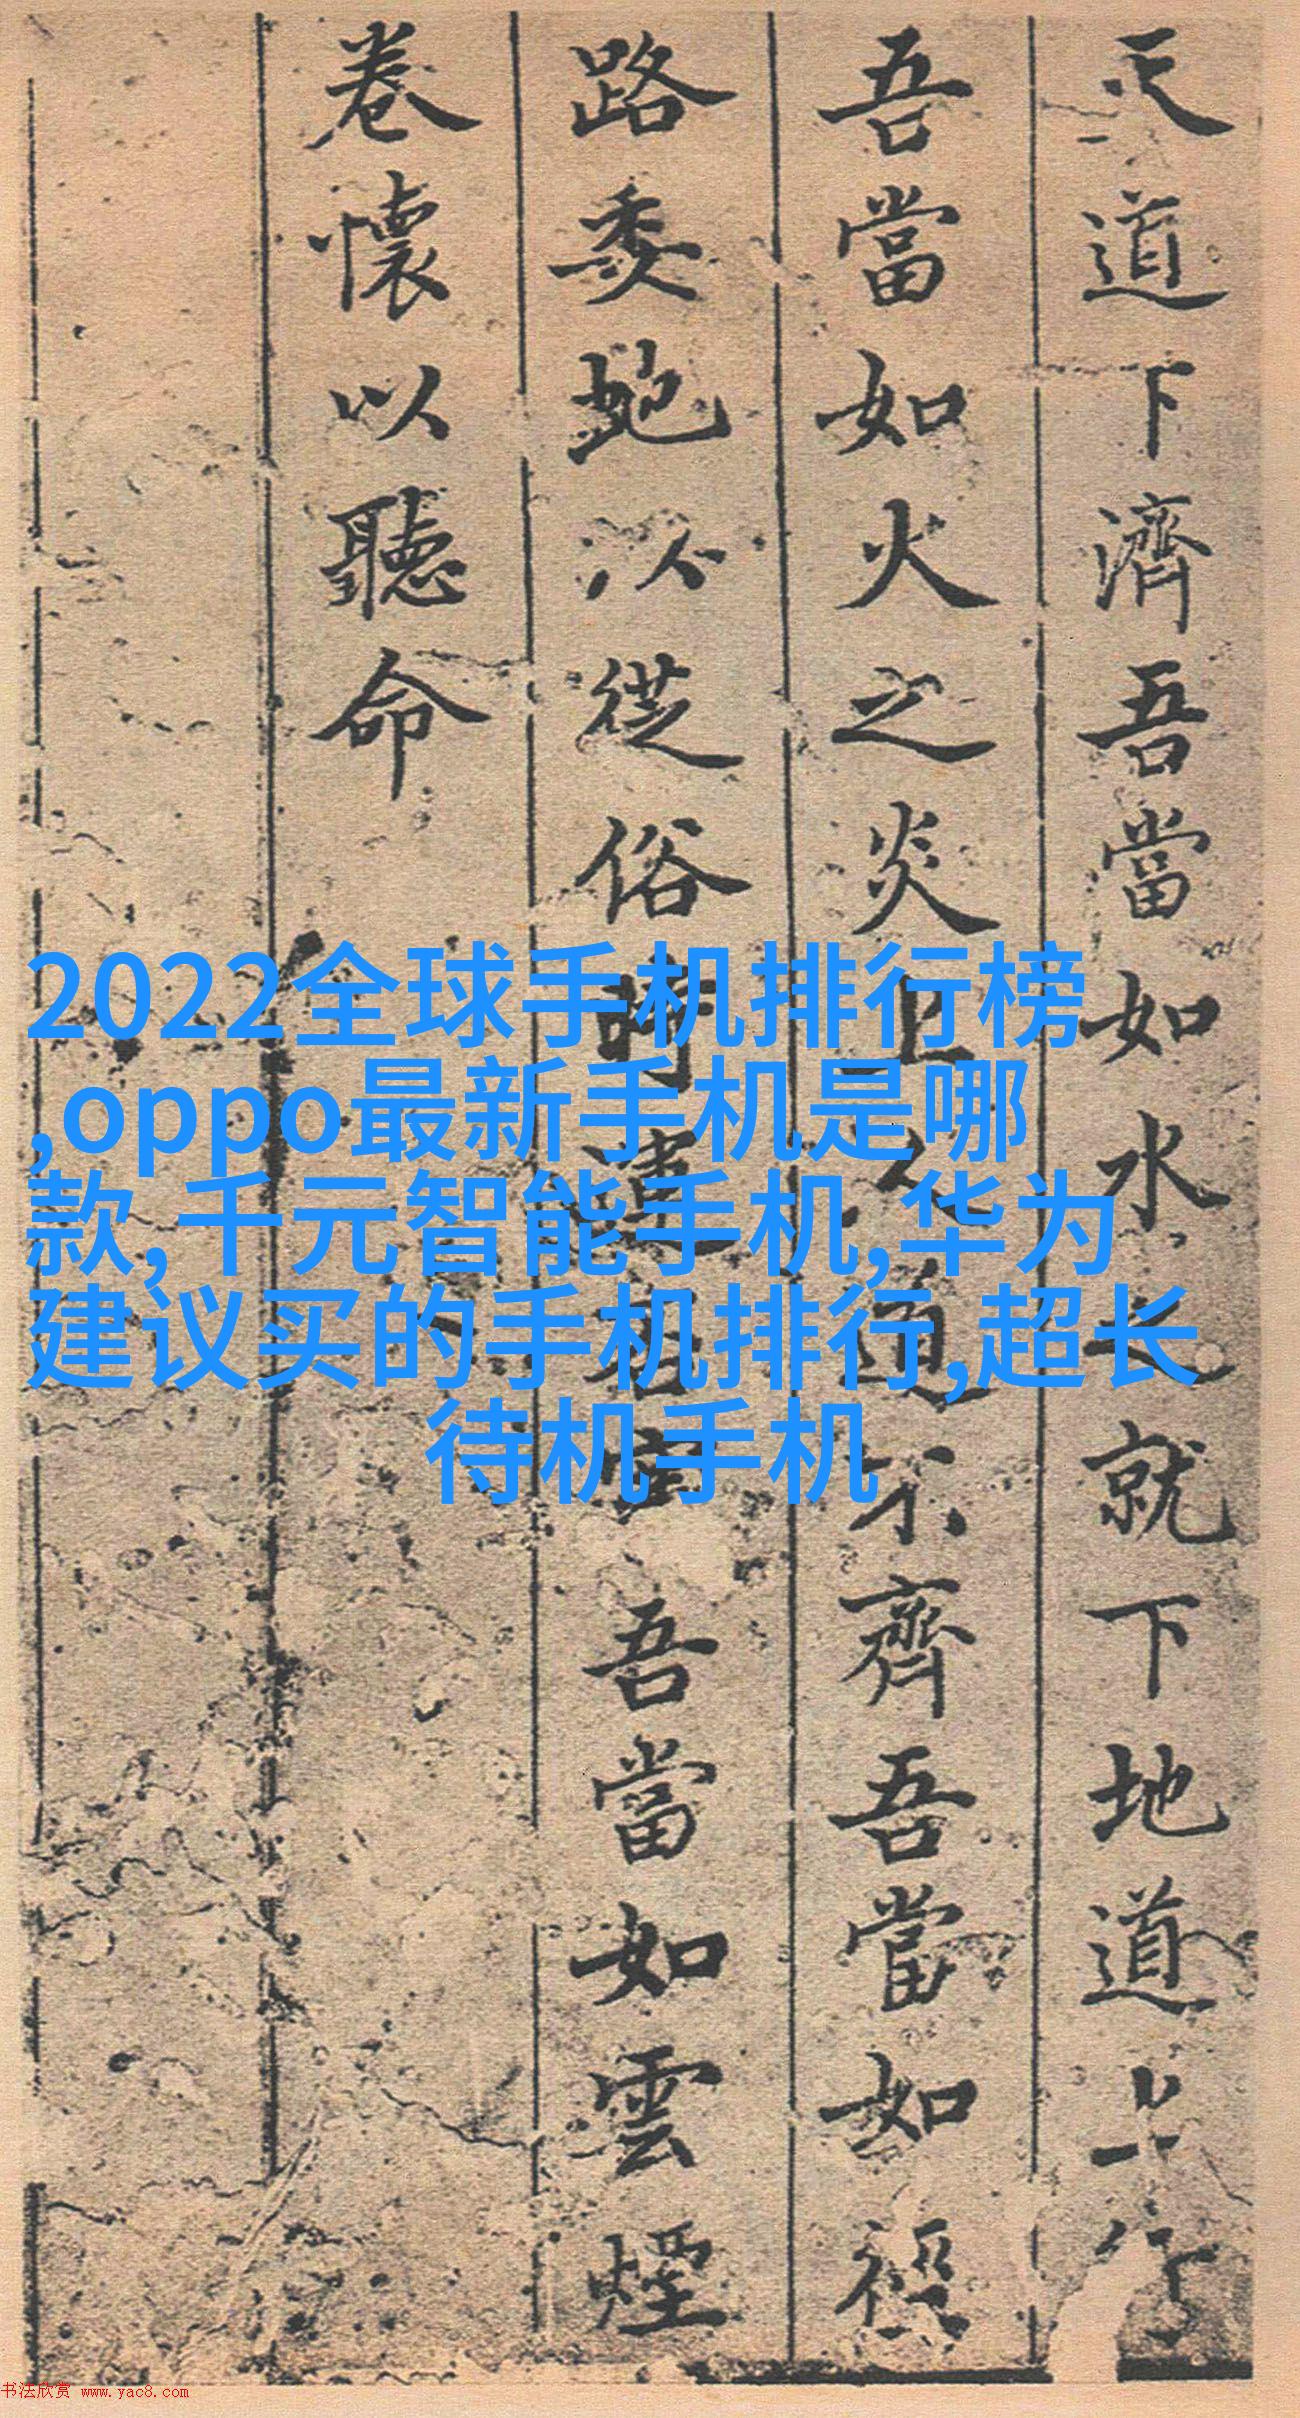 天道下濟吾當如水之就下地道上行
吾當如火之炎上人道不齊吾當如徑
路委虵以從俗時運吾當如雲煙
卷懷以聽命
2022全球手机排行榜
,oppo最新手机是哪
款,千元智能手机,华为
建议买的手机排行,超长
待机手机
书法欣赏 www.yac8.com